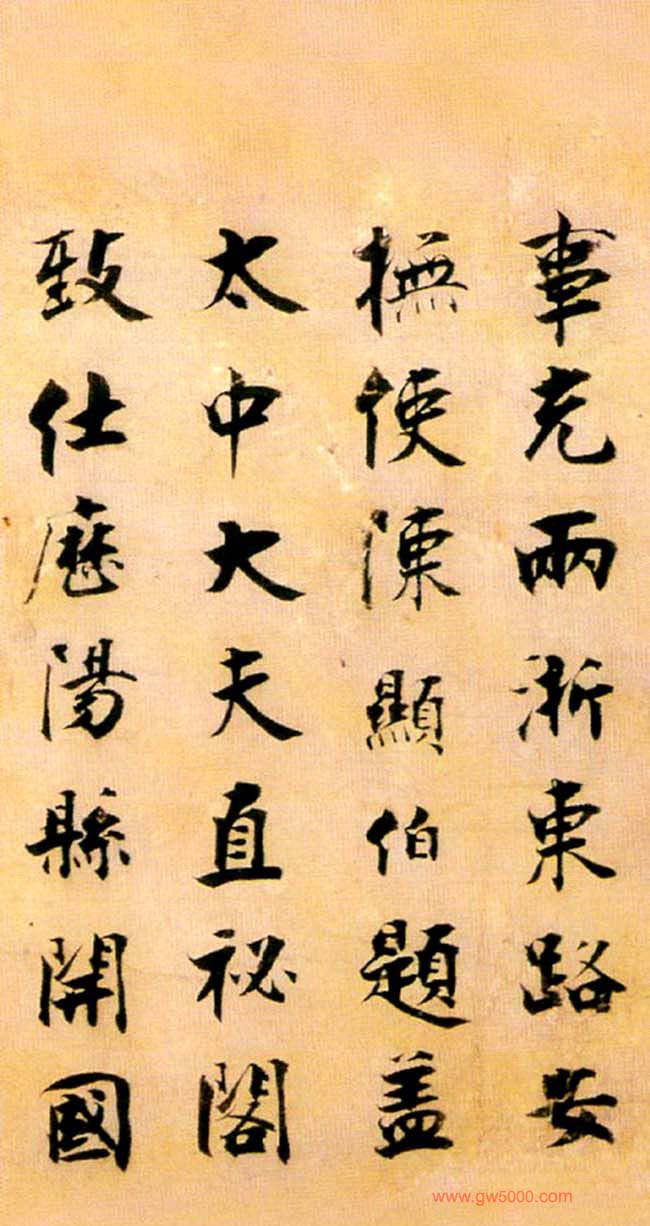 事充兩浙東路安
撫使陳顯伯題蓋
太中大夫直祕閣
致仕歷陽縣開國
www.gw5000.com